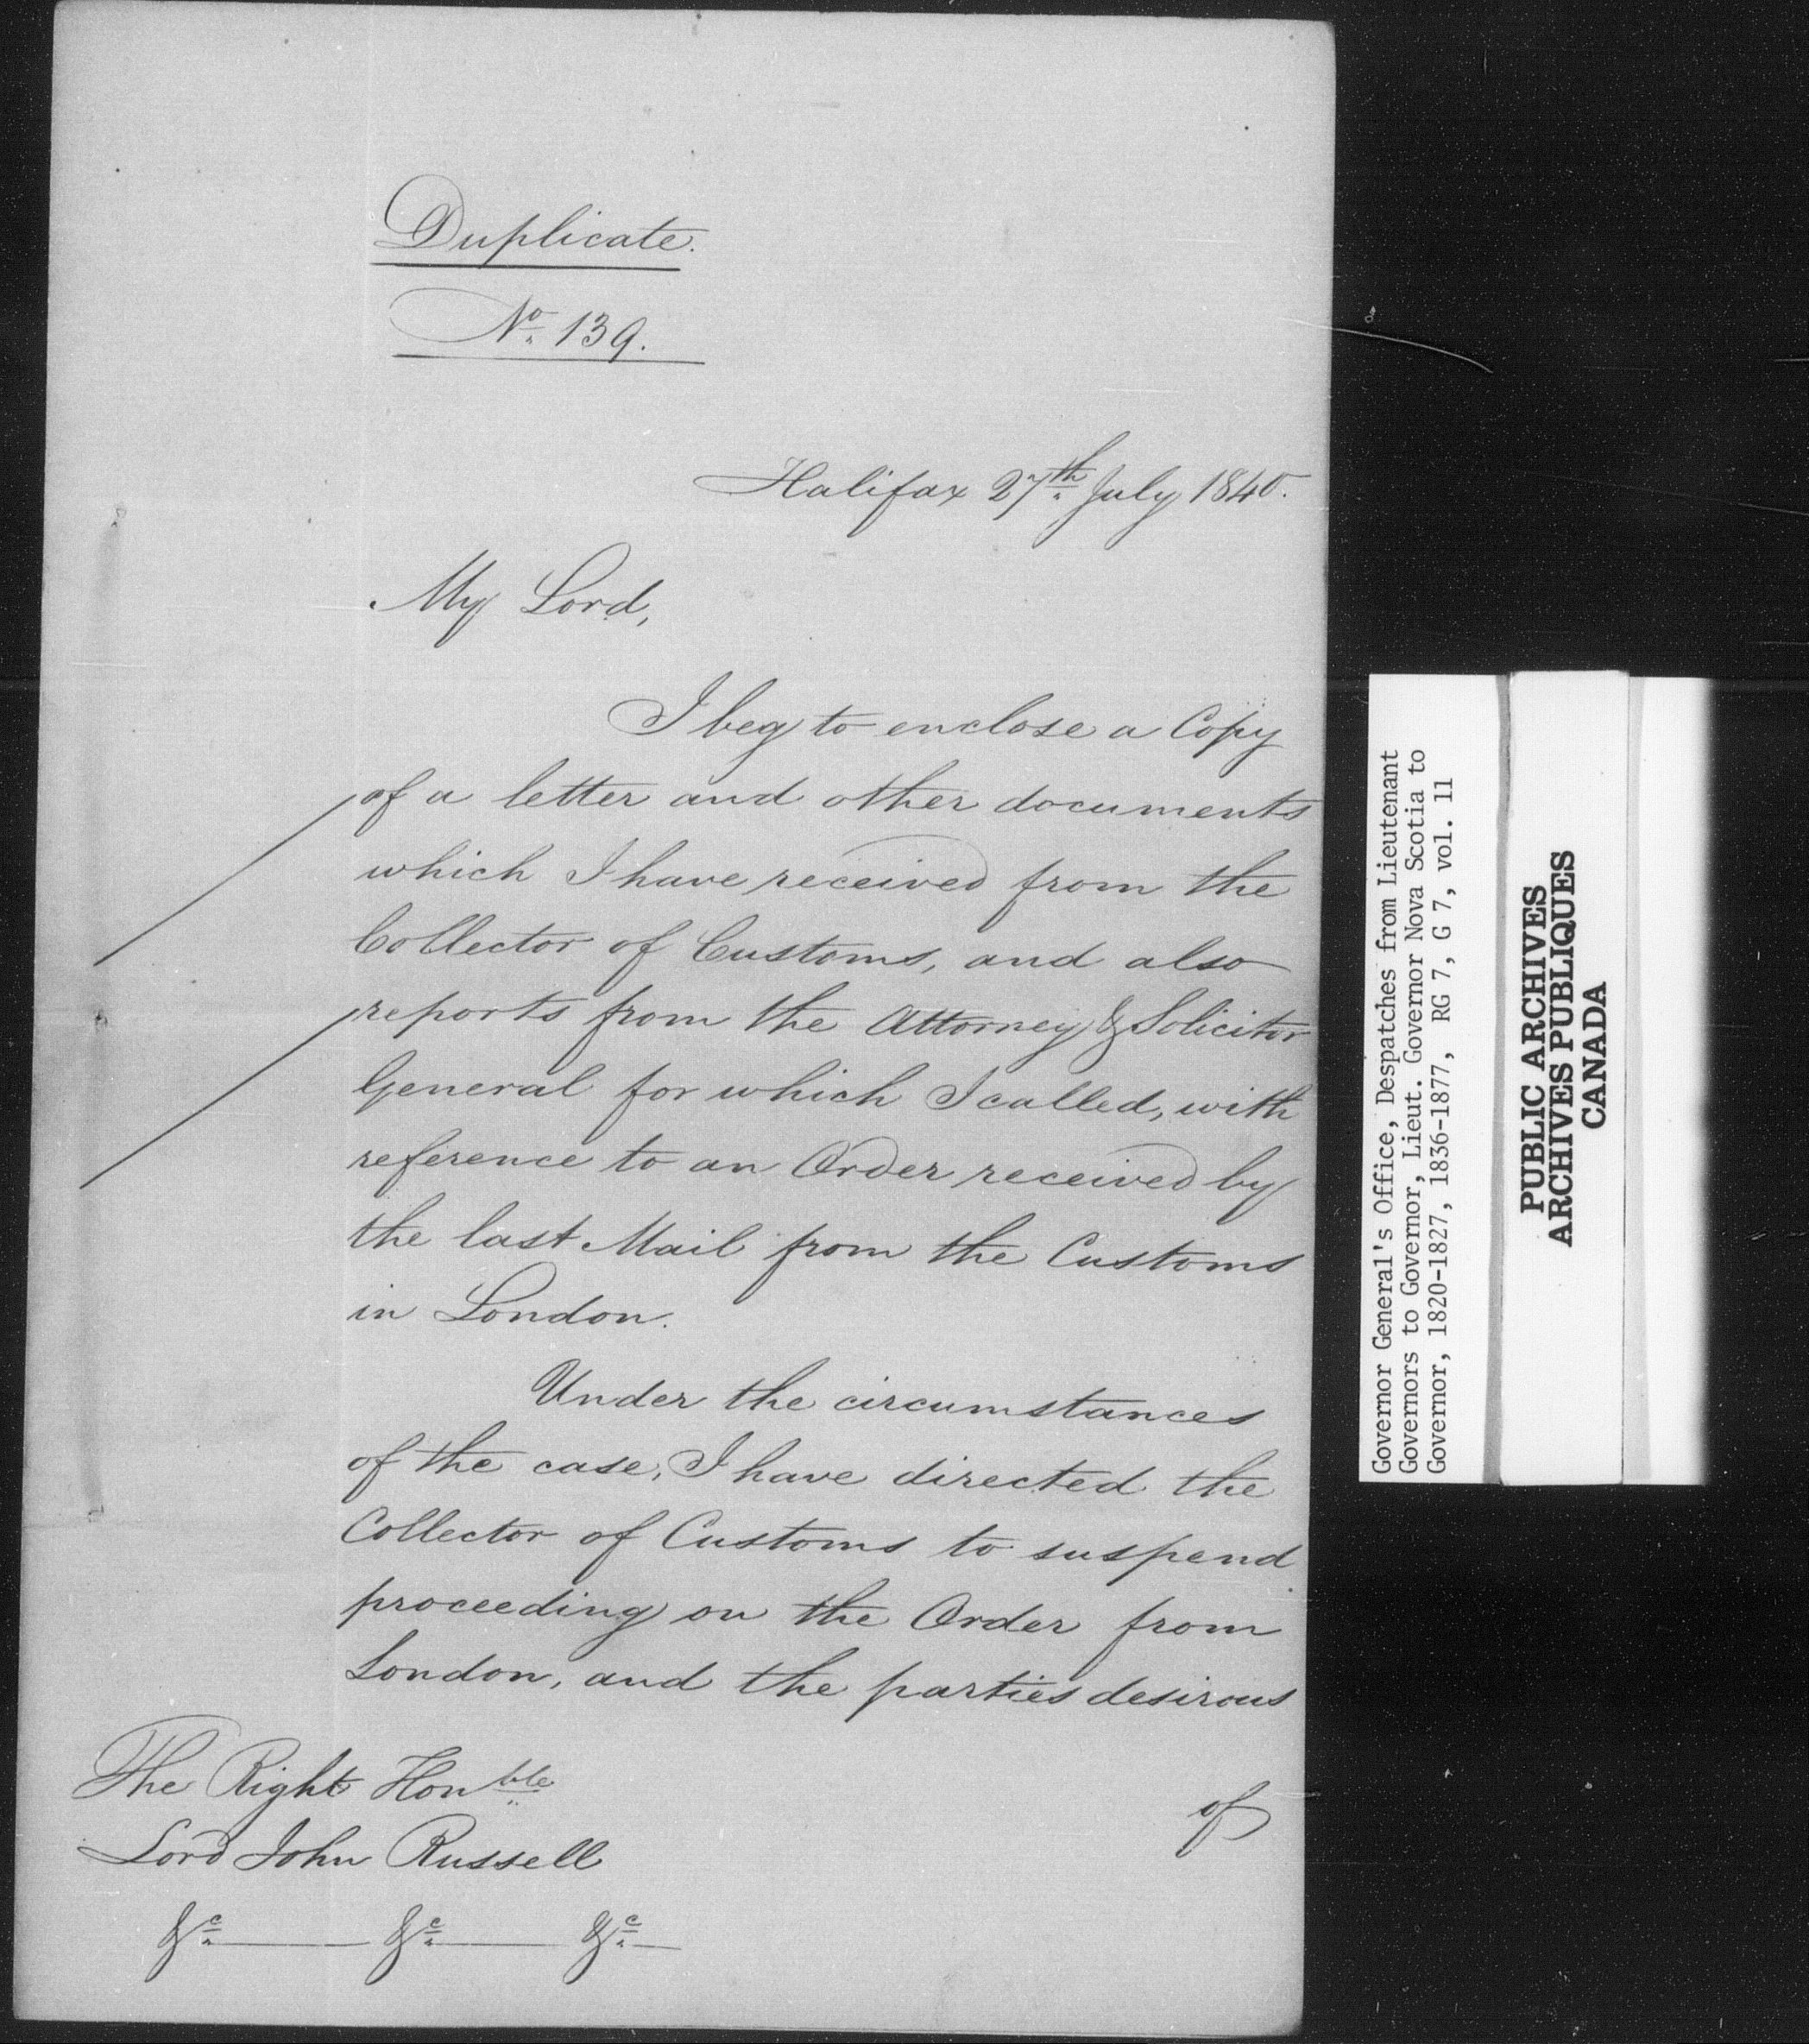 Duplicate.
No. 139.
Halifax 27th July 1840.
My Lord,
I beg to enclose a Copy
of a letter and other documents
which I have received from the
Collector of Customs, and also
reports from the Attorney & Solicitor
General for which I called, with
reference to an Order received by
the last Mail from the Customs
in London.
Under the circumstances
of the case, I have directed the
Collector of Customs to suspend
proceeding on the Order from
London, and the parties desirous
of
The Right Honble
Lord John Russell
&c &c &c
Governor General's Office, Despatches from Lieutenant
Governors to Governor, Lieut. Governor Nova Scotia to
Governor, 1820-1827, 1836-1877, RG 7, G 7, vol. 11
PUBLIC ARCHIVES
ARCHIVES PUBLIQUES
CANADA